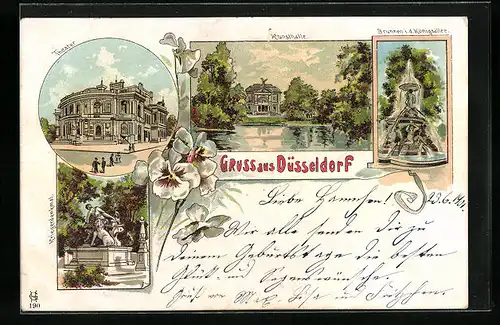 Theater
Kunsthalle
Brunnen i. d. Königsallee.
Gruss aus Düsseldorf
Kriegerdenkmal.
Liebe Hannchen! 23.6.
Wir alle senden Dir zu
Deinem Geburtstage die besten
Glück- und Segenswünsche.
Gruß von Max, Lisa und Fritzchen.
190